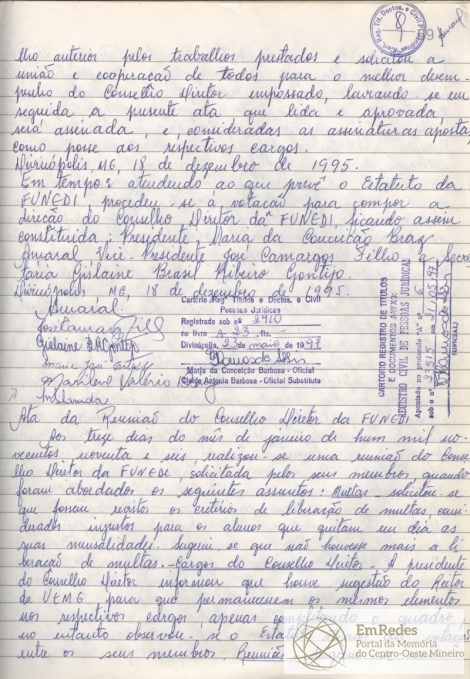 lho anterior pelos trabalhos prestados e solicitou a
união e cooperação de todos para o melhor desem-
penho do Conselho Diretor empossado, lavrando-se em
seguida a presente ata que lida e aprovada,
será assinada, e, consideradas as assinaturas apostas
como posse aos respectivos cargos.
Divinópolis, MG, 18 de dezembro de 1995.
Em tempo: atendendo ao que prevê o Estatuto da
FUNEDI, procedeu-se à votação para compor a
direção do Conselho Diretor da FUNEDI, ficando assim
constituída: Presidente, Maria da Conceição Braz
Amaral, Vice-Presidente José Camargos Filho e Secre
taria Gislaine Brasil Ribeiro Gontijo.
Divinópolis, MG, 18 de dezembro de 1995.
Amaral
Cartório Regº Títulos e Doctos. e Civil
Pessoas Jurídicas
Registrado sob nº 2910
no livro 23, fls.
Divinópolis, 23 de maio de 1997
Maria da Conceição Barbosa - Oficial
Antonia Barbosa - Oficial Substituta
CARTÓRIO REGISTRO DE TÍTULOS
E DOCUMENTOS ANEXO:
REGISTRO CIVIL DE PESSOAS JURÍDICAS
Apontado no protocolo "A" nº 6
sob o nº 23515
(OFICIAL)
Ata da Reunião do Conselho Diretor da FUNEDI
Aos treze dias do mês de janeiro de hum mil no-
vecentos, noventa e seis, realizou-se uma reunião do Conse
lho Diretor da FUNEDI, solicitada pelos seus membros, quando
foram abordados os seguintes assuntos: Multas - solicitou-se
que fossem revistos os critérios de liberação de multas, consi
derados injustos para os alunos que quitam em dia as
suas mensalidades. Sugeriu-se que não houvesse mais a li
beração de multas. - Cargos do Conselho Diretor - A presidente
do Conselho Diretor informou que houve sugestão do Reitor
da UEMG para que permanecessem os mesmos elementos
nos respectivos cargos, apenas o quadro,
no entanto observou-se o
entre os seus membros. Reunião
EmRedes
Portal da Memória
do Centro-Oeste Mineiro